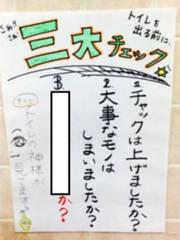 これ!!
トイレを
出る前に、
三大チェック
1.チャックは上げましたか?
2.大事なモノは
しまいましたか?
3.
か?
トイレの神様が
見てます